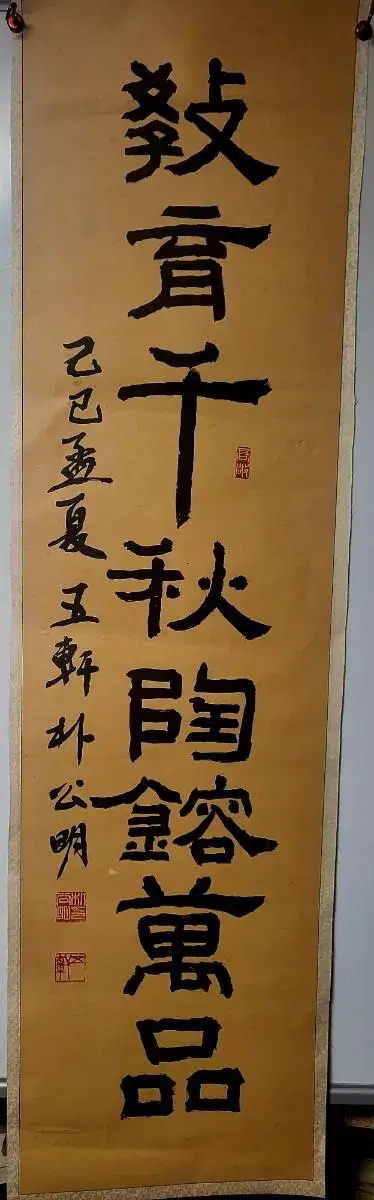 敎育千秋陶鎔萬品
己巳孟夏 五軒 朴公明